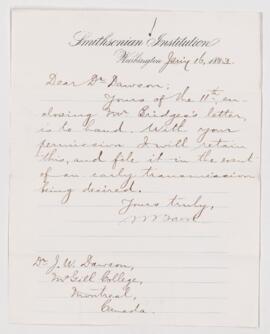 Smithsonian Institution
Washington Jany 16, 1883
Dear Dr Dawson:
Yours of the 11th, en-
closing Mr Bridges's letter,
is to hand. With your
permission I will retain
this, and file it in the event
of an early transmission
being desired.
Yours truly,
Dr J. W. Dawson,
McGill College,
Montreal,
Canada.